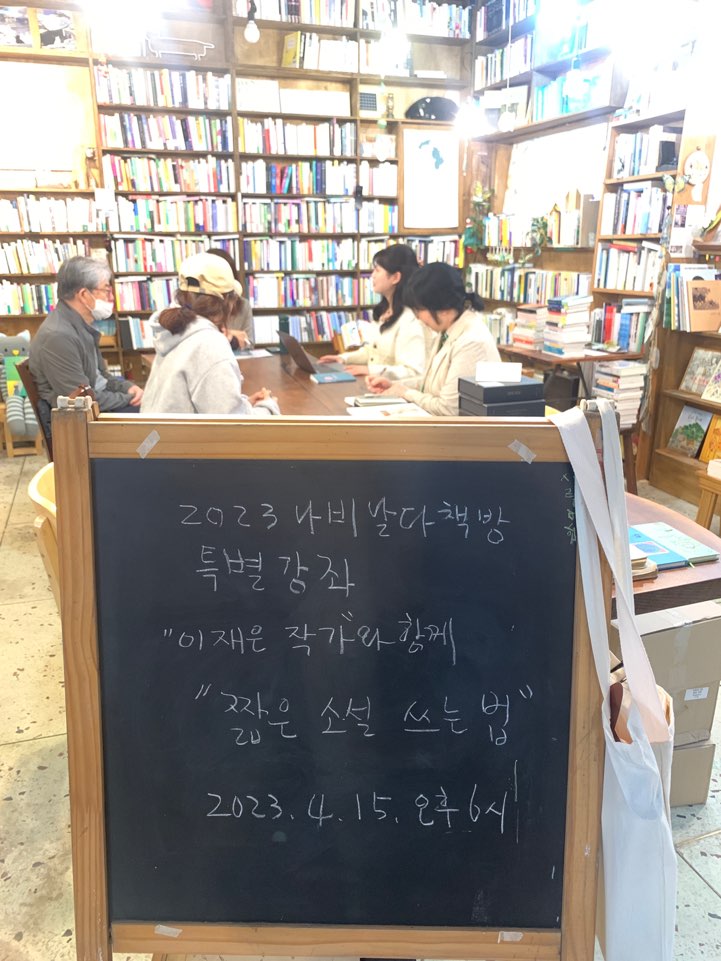 2023 나비날다책방
특별강좌
"이재은 작가"와 함께
"짧은 소설 쓰는 법"
2023. 4. 15. 오후 6시